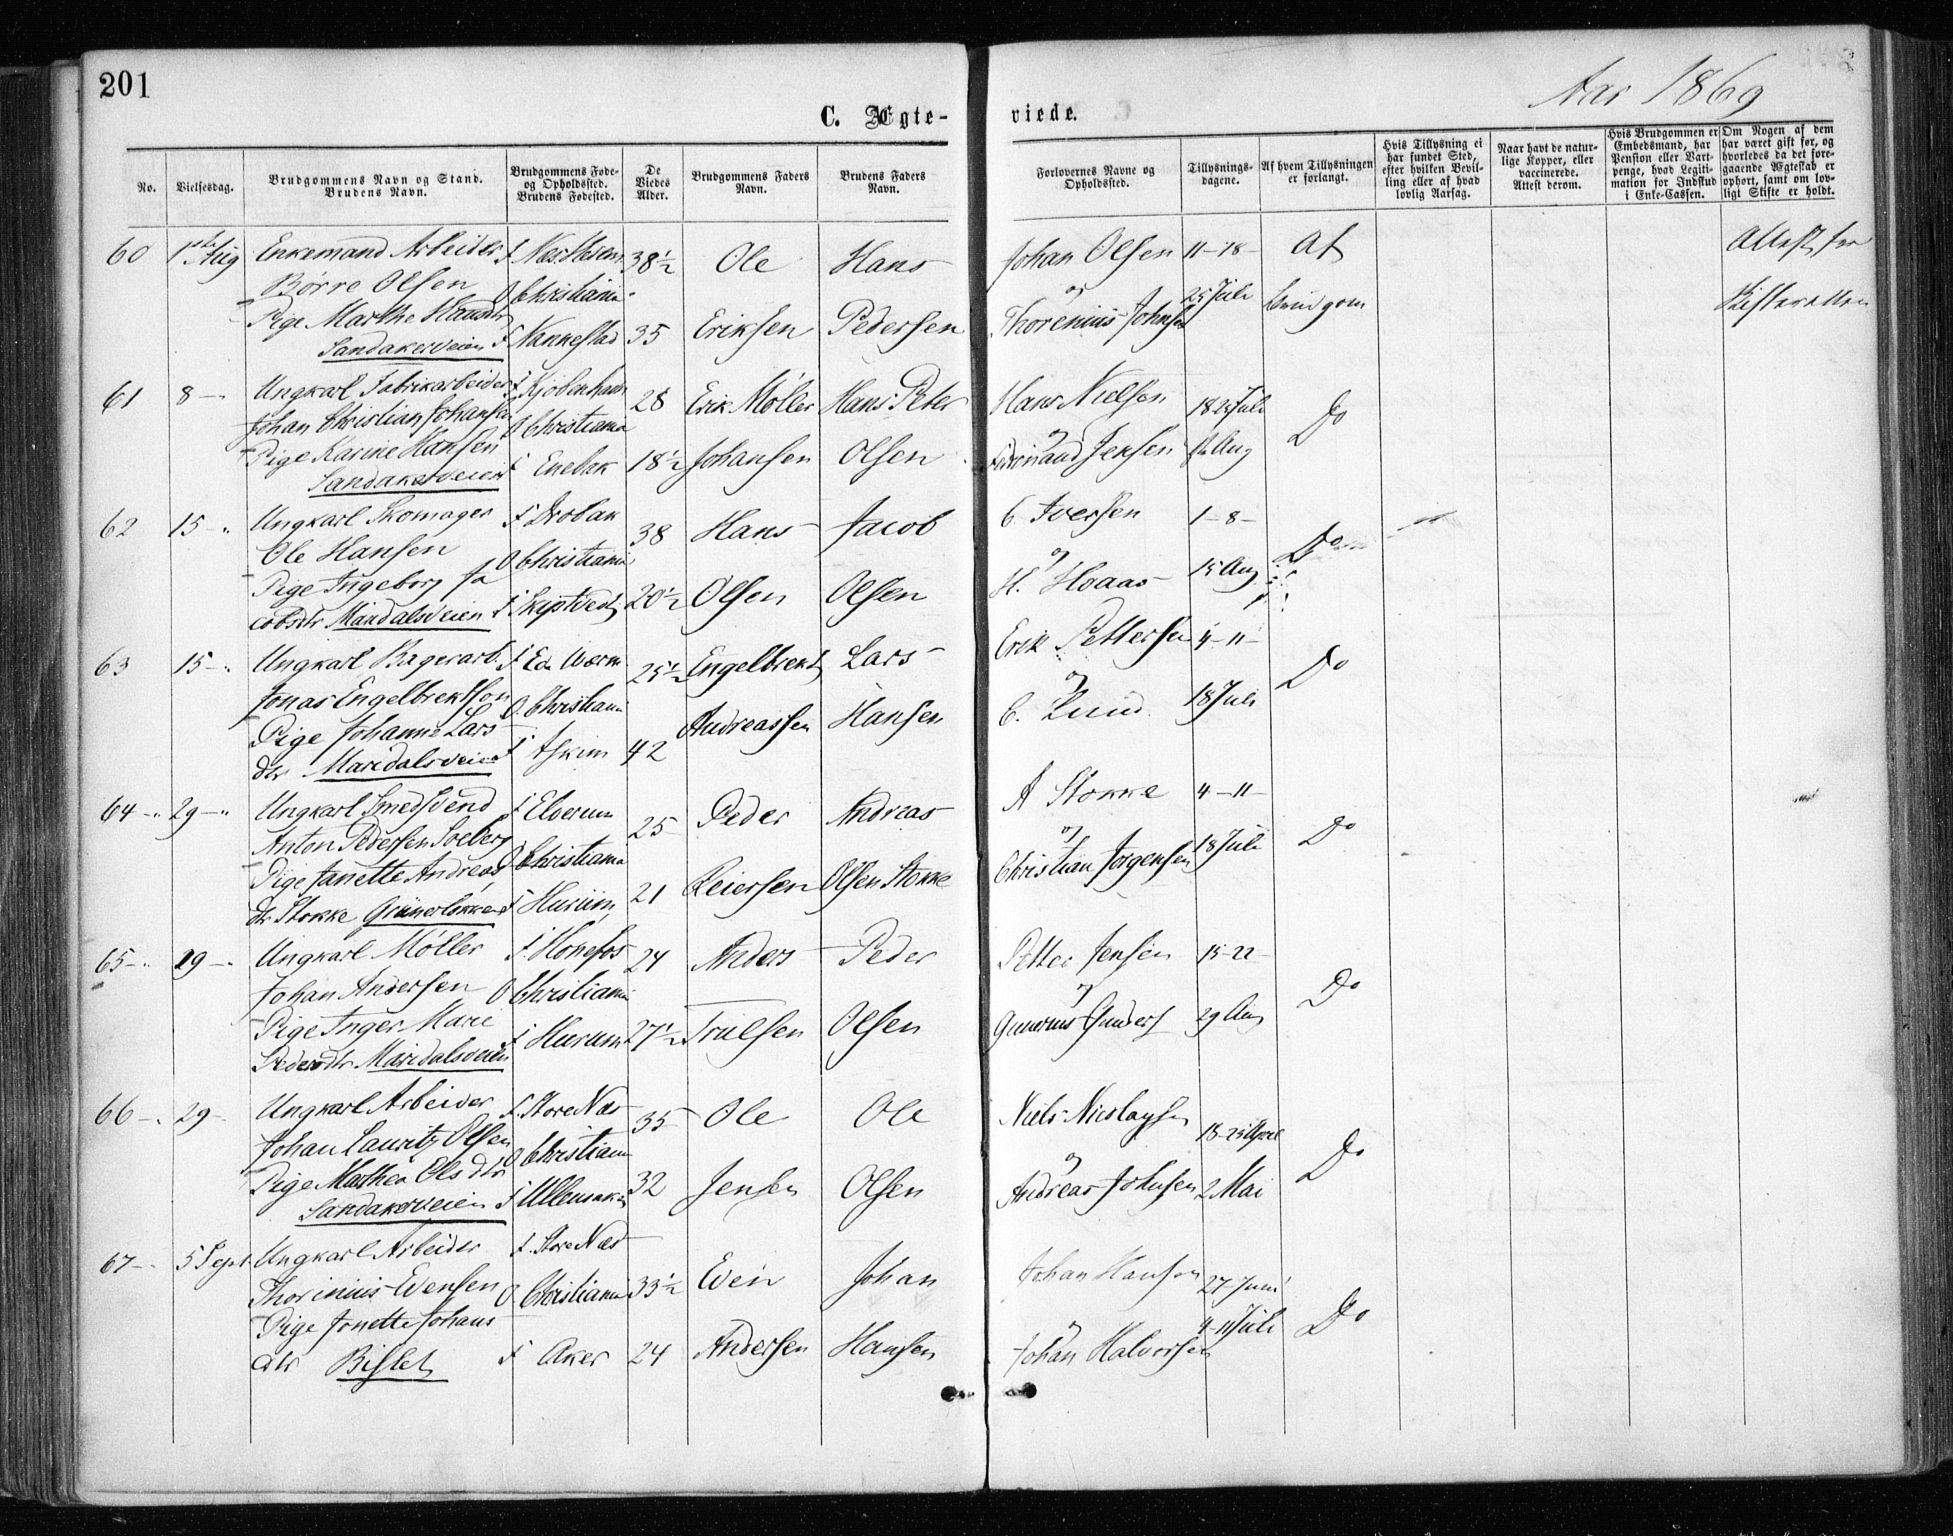 201
Aar 1869
C. Ægte-
viede.
No.
Vielsesdag.
Brudgommens Navn og Stand.
Brudens Navn.
Brudgommens Føde-
og Opholdssted.
Brudens Fødested.
De
Viedes
Alder.
Brudgommens Faders
Navn.
Brudens Faders
Navn.
Forlovernes Navne og
Opholdssted.
Tillysnings-
dagene.
Af hvem Tillysningen
er forlangt.
Hvis Tillysning ei
har fundet Sted,
efter hvilken Bevil-
ling eller af hvad
lovlig Aarsag.
Naar havt de natur-
lige Kopper, eller
vaccinerede.
Attest derom.
Hvis Brudgommen er
Embedsmand, har
Pension eller Vart-
penge, hvad Legiti-
mation for Indskud
i Enke-Cassen.
Om Nogen af dem
har været gift før, og
hvorledes da det fore-
gaaende Ægteskab er
ophørt, samt om lov-
ligt Skifte er holdt.
60 1ste Aug Enkemand Arbeider F 38½ Ole Hans Johan Olsen 11-18- Af Attest fra
Børre Olsen O Christiania og 25 Juli brudgom Skifteretten
Pige Marthe Hansdtr F Nannestad 35 Eriksen Pedersen Thorenius Johnsen
Sandakerveien
61 8 - Ungkarl Fabrikarbeider F Kjøbenhavn 28 Erik Møller Hans Peter Hans Nielsen 18-25 Juli Do
Johan Christian Johansen O Christiania og
Pige Karine Hansen F Enebak 18½ Johansen Olsen Ferdinand Jensen 1ste Aug
Sandakerveien
62 15 - Ungkarl Skomager F Drøbak 38 Hans Jacob C. Iversen 1-8- Do
Ole Hansen O Christiania og 15 Aug
Pige Ingeborg Ja F Skiptvedt 20½ Olsen Olsen H. Hoaas
cobsdtr Maridalsveien
63 15 - Ungkarl Bagerarb. F Eda Værm 25½ Engelbrekt Lars Erik Pettersen 4-11- Do
Jonas Engelbrektson O Christiania og 18 Juli
Pige Johanne Lars F Askim 42 Andreassen Hansen C. Lund
dtr Maridalsveien
64 - 29 - Ungkarl Smedsvend F Elverum 25 Peder Andreas A Stokke 4-11- Do
Anton Pedersen Soeberg O Christiania og 18 Juli
Pige Janette Andreas F Hurum 21 Reiersen Olsen Stokke Christian Jørgensen
dtr Stokke Grünerløkken
65 - 29 - Ungkarl Møller F Hønefos 24 Anders Peder Petter Jensen 15-22- Do
Johan Andersen O Christiania og
Pige Inger Marie F Hurum 27½ Trulsen Olsen Gunerius Gunders 29 Aug
Pedersdtr Maridalsveien
66 - 29 - Ungkarl Arbeider F. Store Næs 35 Ole Ole Niels Nicolaysen 18-25 April Do
Johan Lauritz Olsen O Christiania og
Pige Mathea Olsdtr F Ullensaker 32 Jensen Olsen Andreas Johnsen 2 Mai
Sandakerveien
67 - 5 Sept Ungkarl Arbeider F. Store Næs 33½ Even Johan Johan Hansen 27 Juni Do
Thorinius Evensen O. Christiania og 4-11 Juli
Pige Jonette Johans F Aker 24 Andersen Hansen Johan Halvorsen
dtr Bislet